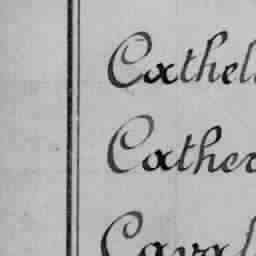 Cathel
Cather
Caval